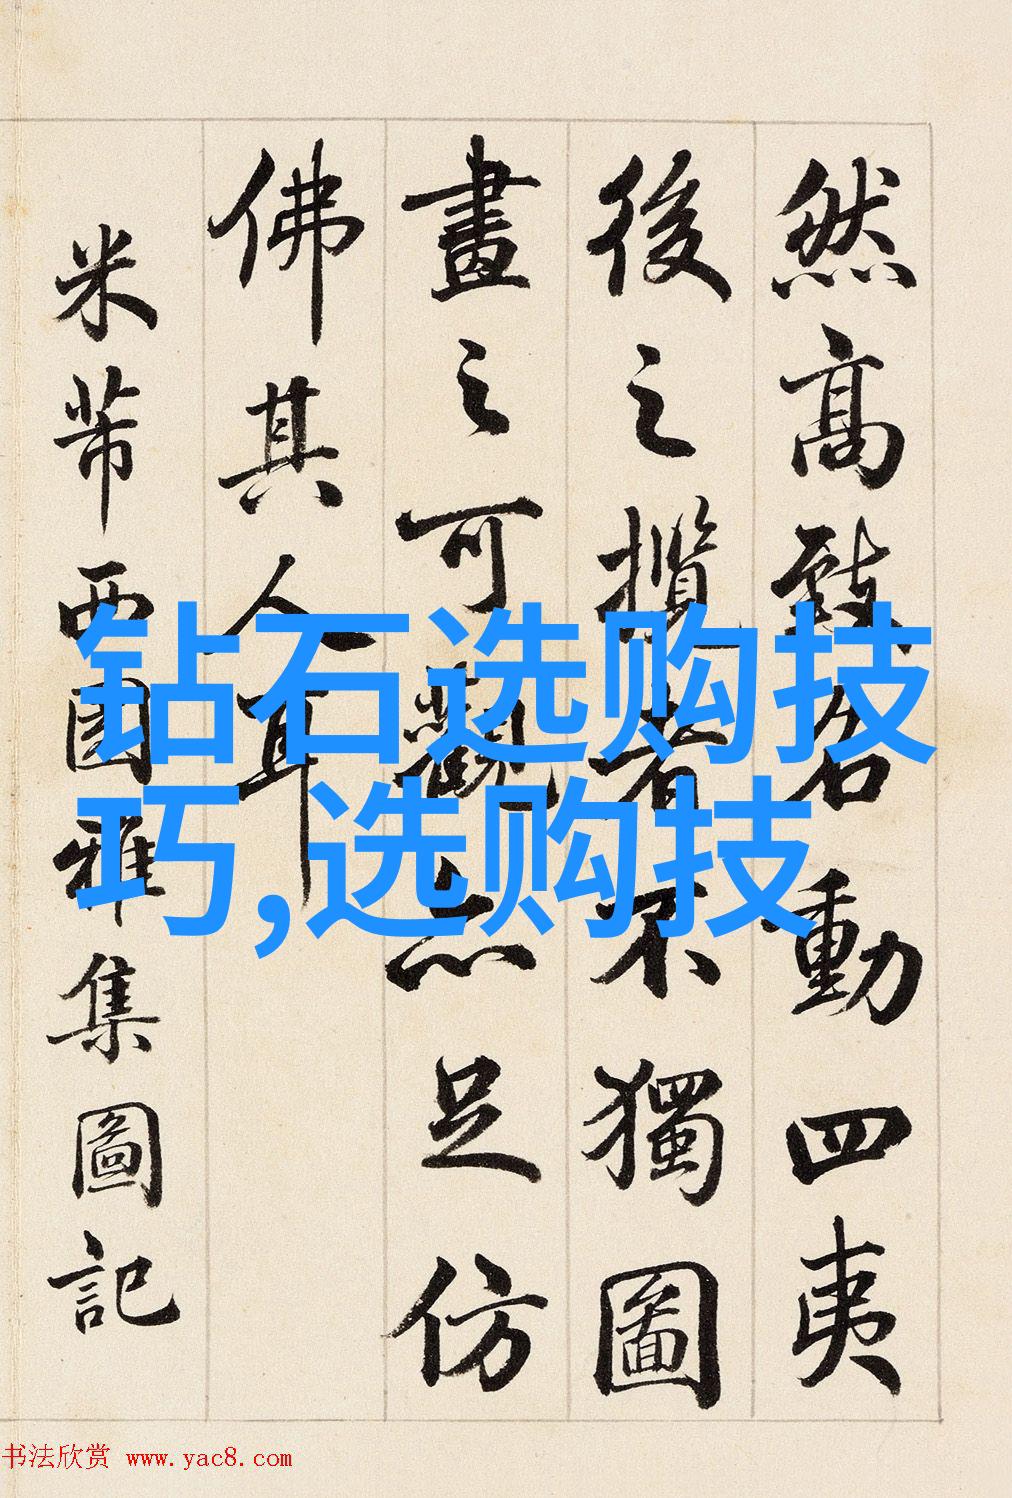 然高致名動四夷
後之攬者不獨圖
畫之可觀亦足仿
佛其人耳
米芾西園雅集圖記
钻石选购技
巧,选购技
书法欣赏 www.yac8.com